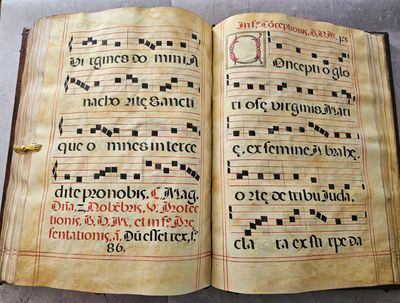 Virgines domini A
nachoritę Sancti
que omnes interce
dite pro nobis. C. Mag.
Dña. 2. Nobẽbris. V. Protec
tionis, B. V. M. et in fº. Pre
sentationis, ã. Dũ esset rex, fº.
86.
In fº. Cõceptionis, B. V. M.
Conceptio glo
riosę virginis Mari
ę, ex semine Abrahę,
ortę de tribu Juda,
clara ex stirpe Da